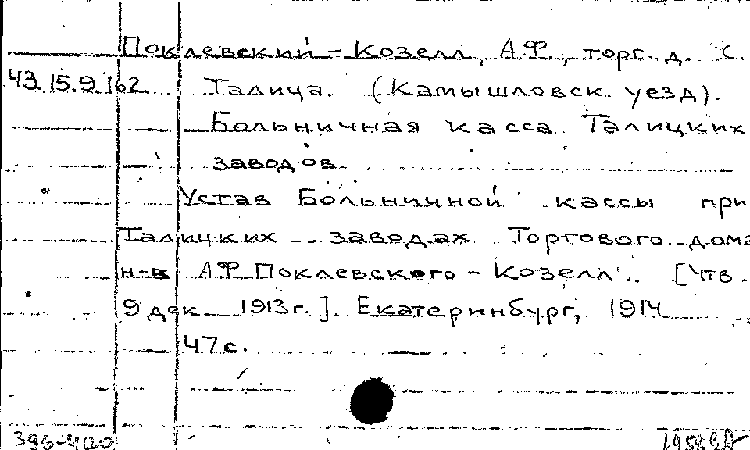 Поклевский-Козелл, А.Ф., торг. д. с.
43.15.9.162 Талица. (Камышловск. уезд).
Больничная касса Талицких
заводов.
Устав Больничной кассы при
Талицких заводах Торгового дома
н-в А.Ф. Поклевского-Козелл. [Утв.
9 дек. 1913 г.]. Екатеринбург, 1914
47 с.
396-400